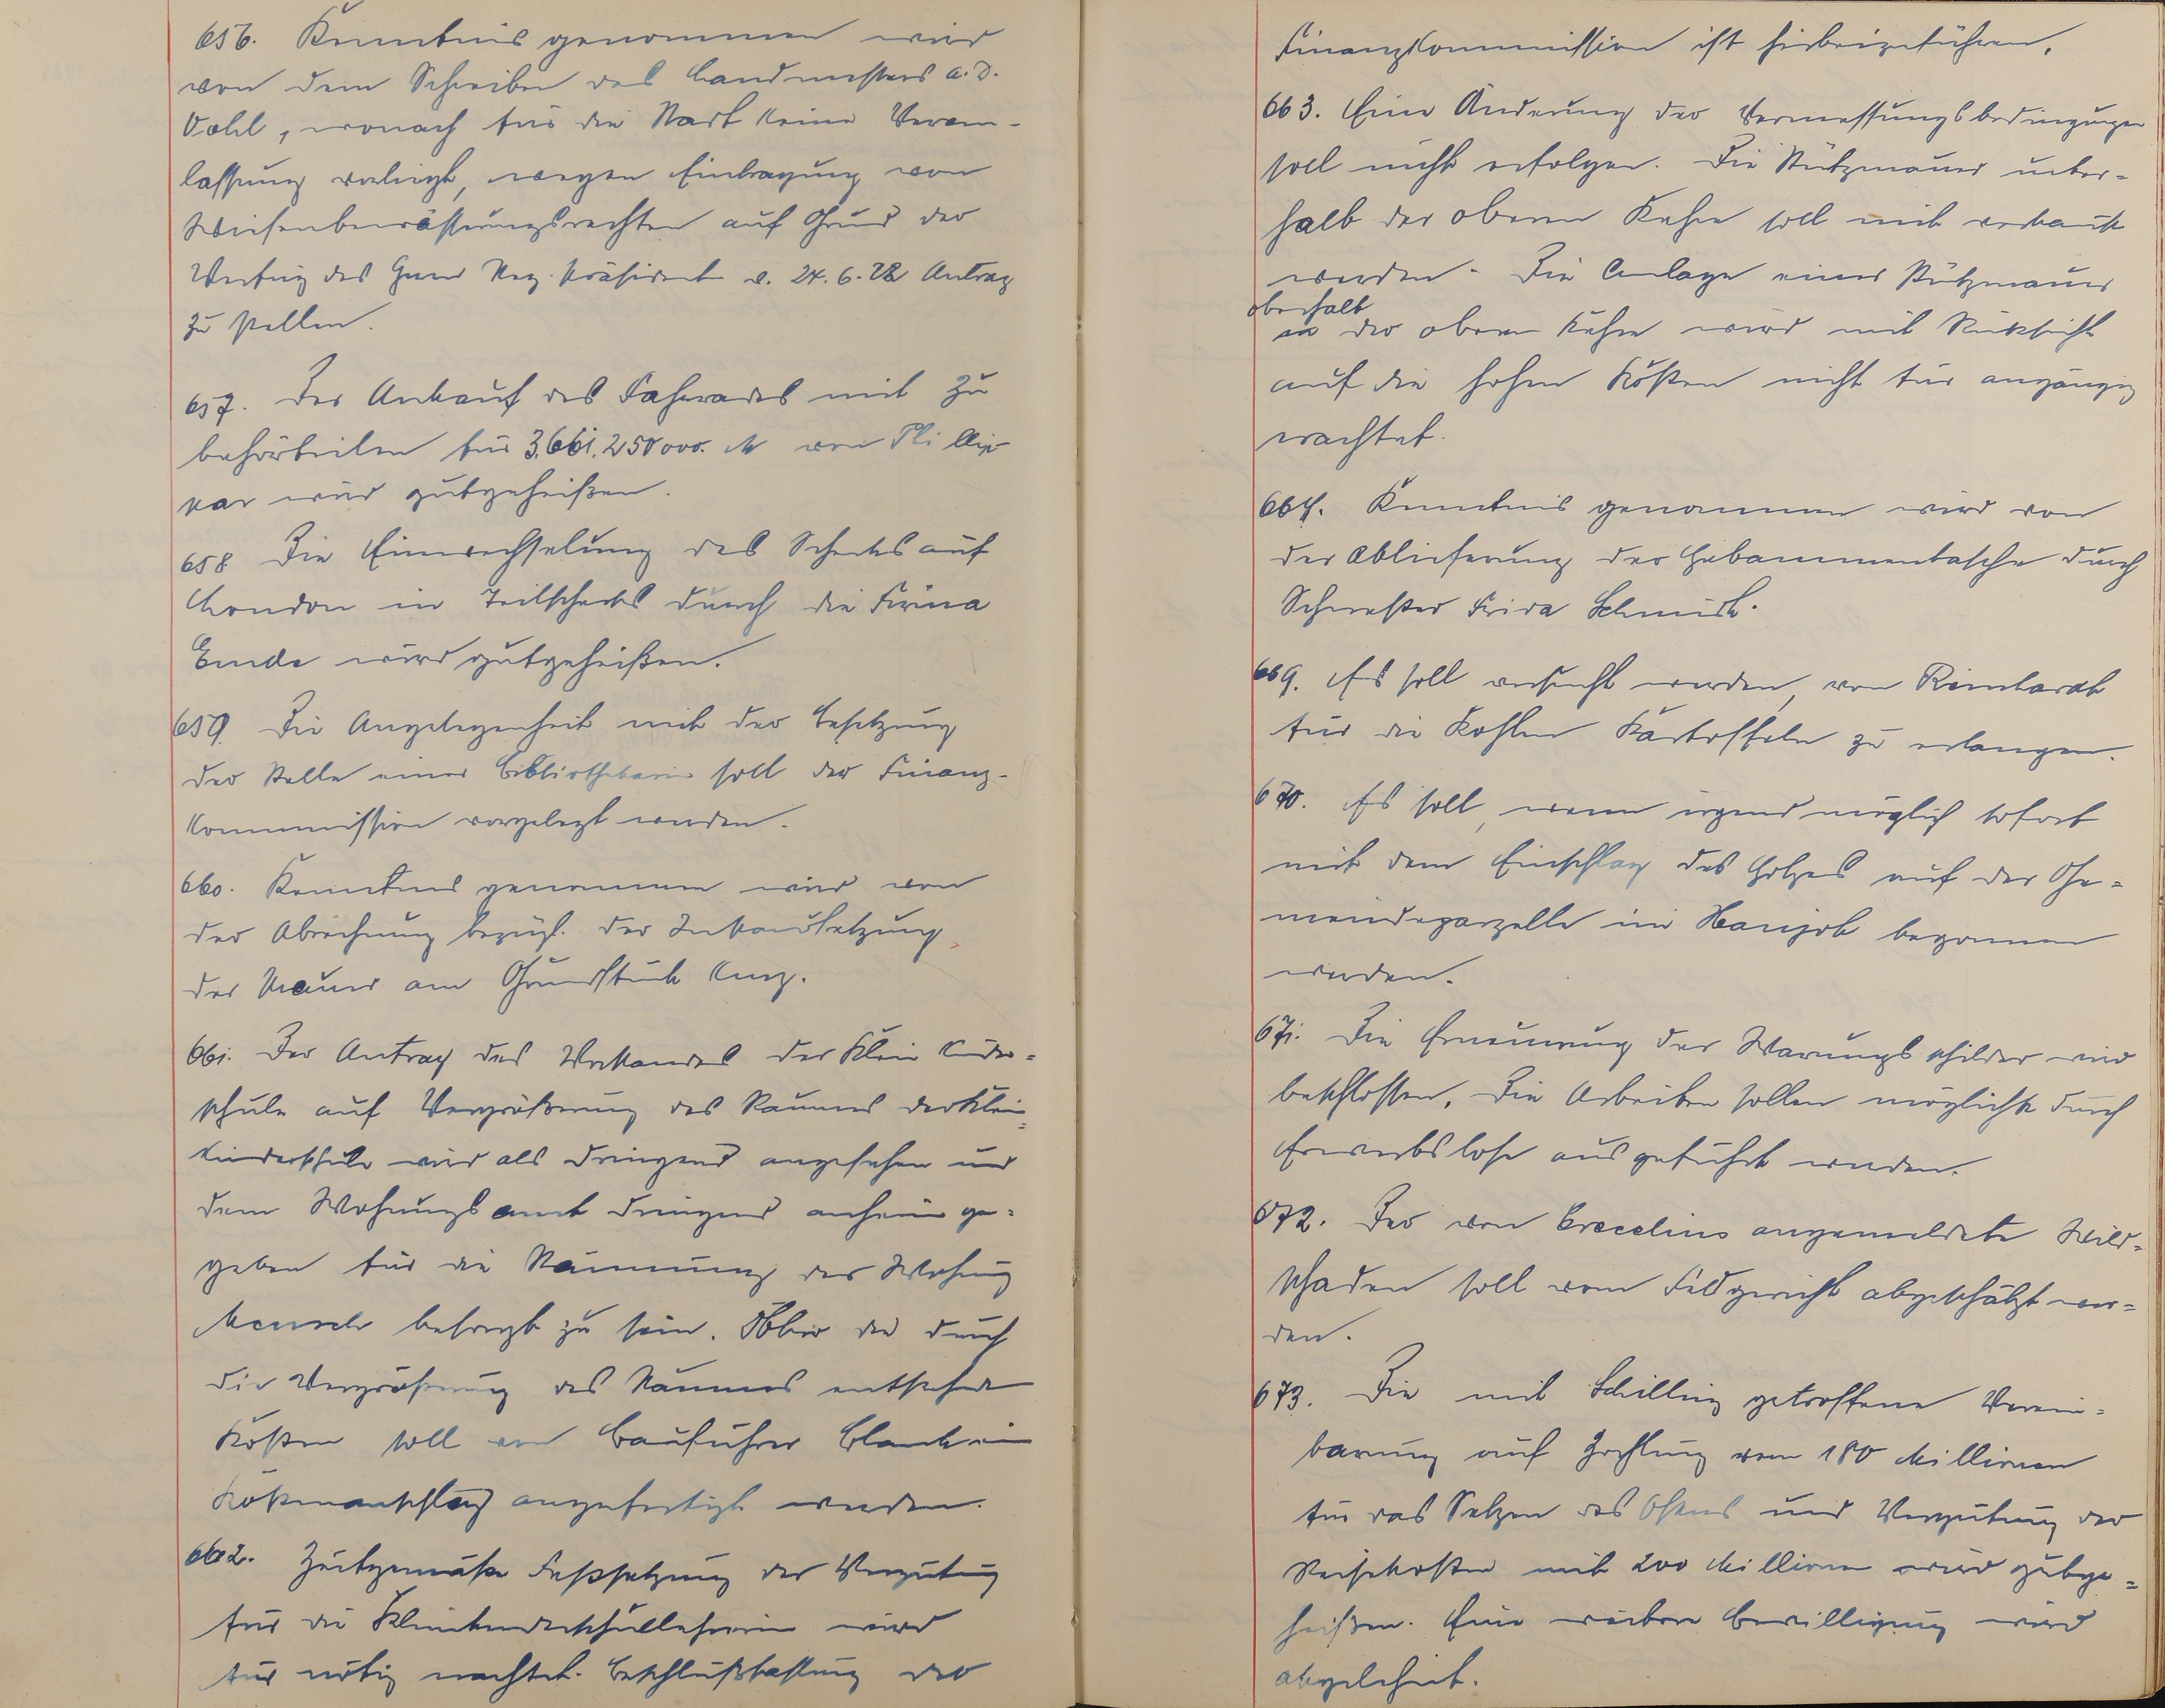 656. Kenntnis genommen wird
von dem Schreiben des Landmessers a. D.
Vohl, wonach für die Stadt keine Veran-
lassung vorliegt, wegen Eintragung von
Wiesenbewässerungsrechten auf Grund der
Verfüg des Herrn Reg. Präsident v. 24. 6. 22 Antrag
zu stellen.
657. Der Ankauf des Fahrrades mit Zu
behörteilen für 3.661.250 000. M von Phillip
var wird gutgeheißen.
658 Die Einwechselung des Schecks auf
London in Teilschecks durch die Firma
Emde wird gutgeheißen.
659 Die Angelegenheit mit der Besetzung
der Stelle einer Bibliothekarin soll der Finanz-
Kommission vorgelegt werden.
660. Kenntnis genommen wird von
der Abrechnung bezügl. der Instandsetzung
der Mauer am Grundstück Kurz.
661. Der Antrag des Vorstandes der Klein Kinder=
schule auf Vergrößerung des Raumes der Klein=
kinderschule wird als dringend angesehen und
dem Wohungsamt dringend anheim ge=
geben für die Räumung der Wohung
Mensch besorgt zu sein. Über die durch
die Vergrößerung des Raumes entstehende
Kosten soll von Bauführer Blank ein
Kostenanschlag angefertigt werden.
662. Zeitgemäße Festsetzung der Vergütung
für die Kleinkinderschullehrerin wird
für nötig erachtet. Beschlußfassung der
Finanzkommission ist herbeizuführen.
663. Eine Änderung der Vermessungsbedingungen
soll nicht erfolgen. Die Stützmauer unter-
halb der oberen Kehre soll mit verkauft
werden. Die Anlage einer Stützmauer
oberhalb
an der oberen Kehre wird mit Rücksicht
auf die hohen Kosten nicht für angängig
erachtet.
664. Kenntnis genommen wird von
der Ablieferung der Hebammentasche durch
Schwester Frida Schmidt.
669. Es soll versucht werden, von Reinhardt
für die Kohlen Kartoffeln zu erlangen.
670. Es soll, wenn irgend möglich sofort
mit dem Einschlag des Holzes auf der Ge=
meindeparzelle im begonnen
werden.
671. Die Erneuerung der Warungsschilder wird
beschlossen. Die Arbeiten sollen möglichst durch
Erwerbslose ausgeführt werden.
672. Der von Crecelius angemeldete Wild=
schaden soll vom Feldgericht abgeschätzt wer=
den.
673. Die mit Schilling getroffene Verein=
barung auf Zahlung von 180 Millionen
für das Setzen des Ofens und Vergütung der
Reisekosten mit 200 Millionen wird gutge=
heißen. Eine weitere Bewilligung wird
abgelehnt.